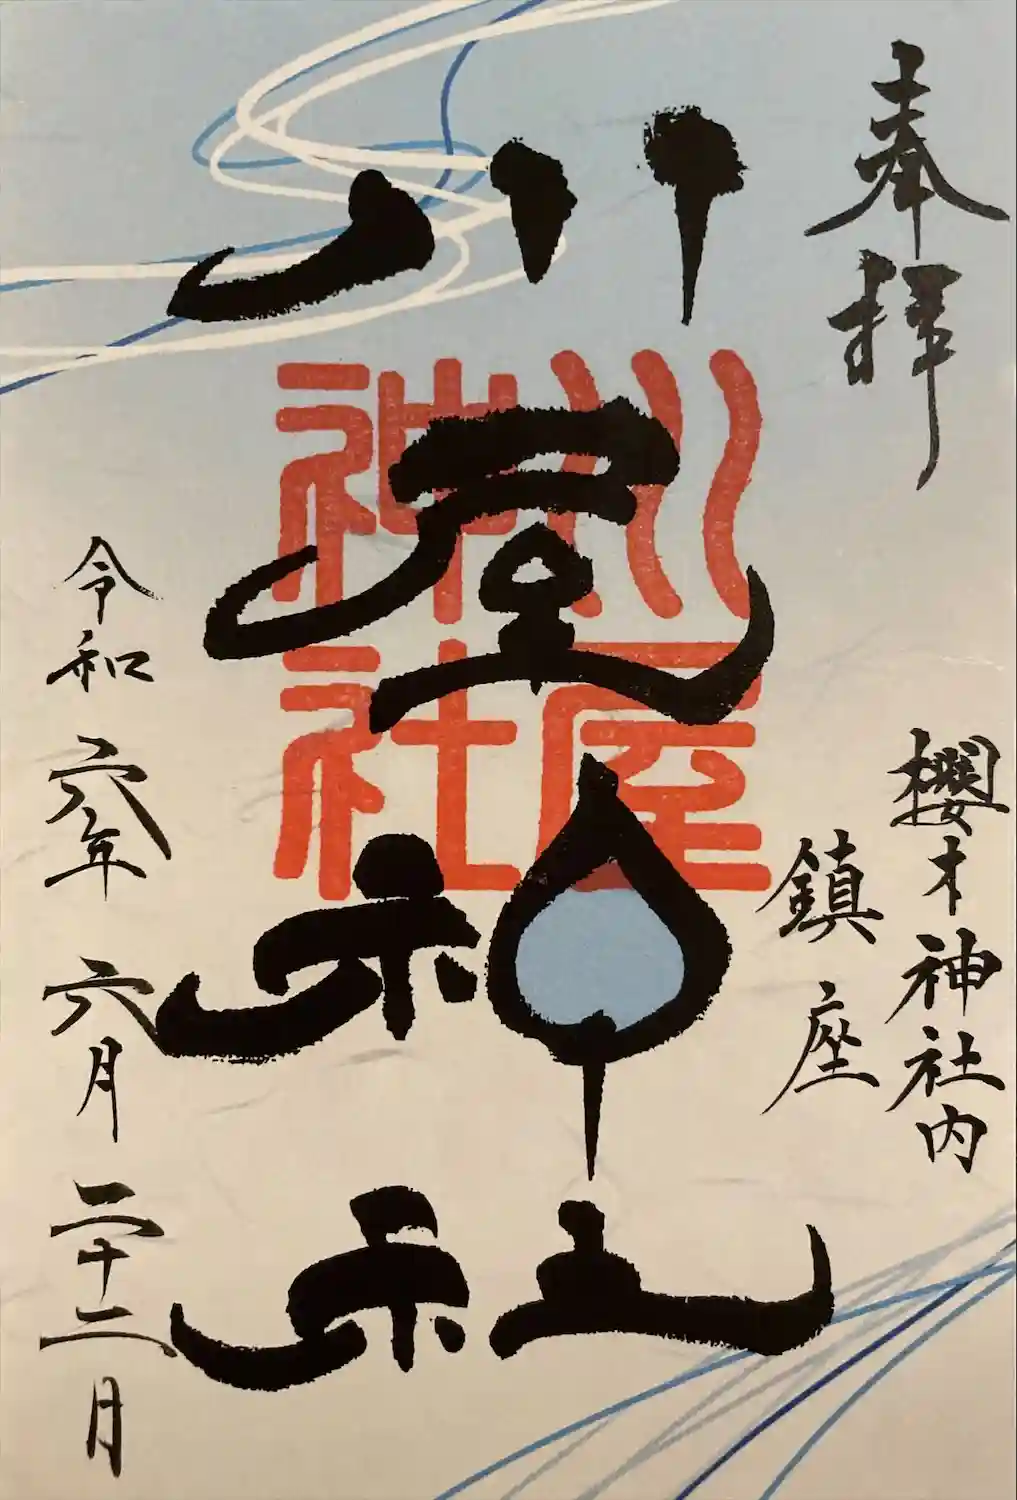 奉拝
櫻木神社内
鎮座
川屋神社
川屋神社
令和六年六月二十二日